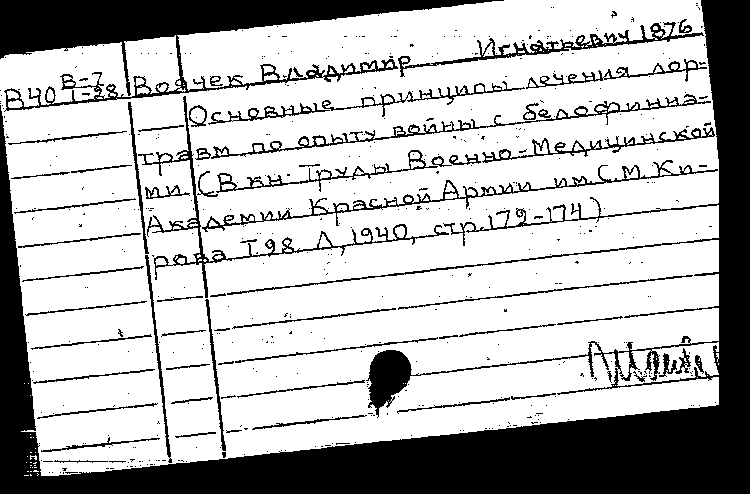 В40 В-7 Т-28 Воячек, Владимир Игнатьевич 1876
Основные принципы лечения лор-
травм по опыту войны с белофинна-
ми. (В кн: Труды Военно-Медицинской
Академии Красной Армии им. С.М. Ки-
рова Т.98. Л, 1940, стр. 179-174)